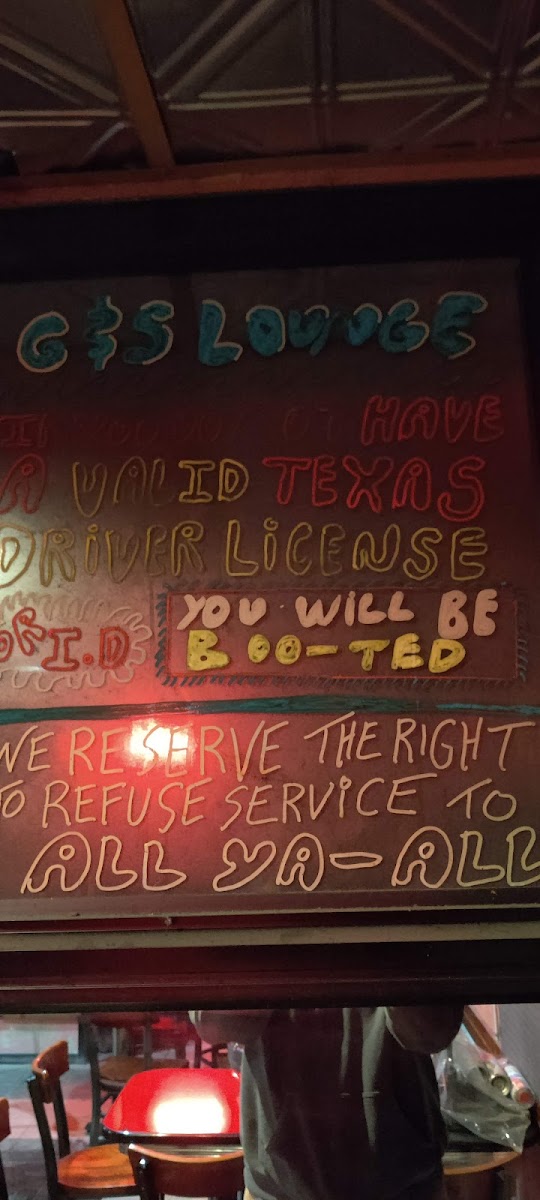 G&S LOUNGE
IF YOU DO NOT HAVE
A VALID TEXAS
DRIVER LICENSE
OR I.D
YOU WILL BE
BOO-TED
WE RESERVE THE RIGHT
TO REFUSE SERVICE TO
ALL YA-ALL